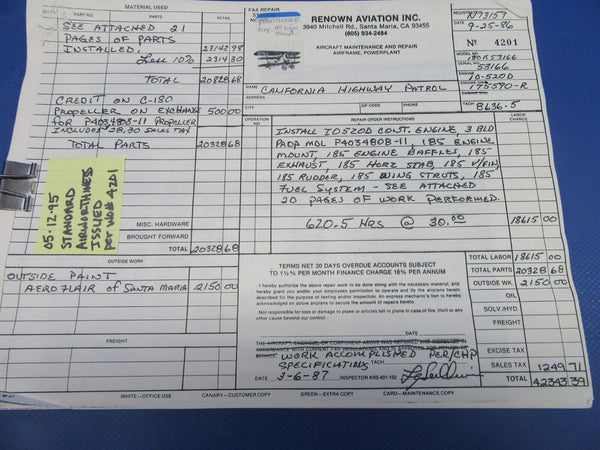 MATERIAL USED
PART NO. PARTS RETAIL
SEE ATTACHED 21
PAGES OF PARTS
INSTALLED, 23142 98
Less 10% 2314 30
TOTAL 20828 68
CREDIT ON C-180
PROPELLER ON EXCHANGE 500 00
FOR P4034808-11 PROPELLER
INCLUDES 28.30 SALES TAX
TOTAL PARTS 20328 68
05-12-95
STANDARD
AIRWORTHINESS
ISSUED
per WO# 4201
MISC. HARDWARE
BROUGHT FORWARD
TOTAL 20328 68
OUTSIDE WORK
OUTSIDE PAINT
AEROFLAIR of SANTA MARIA 2150 00
FREIGHT
FAA REPAIR
RENOWN AVIATION INC.
3940 Mitchell Rd., Santa Maria, CA 93455
(805) 934-2484
AIRCRAFT MAINTENANCE AND REPAIR
AIRFRAME, POWERPLANT
REGISTRATION N73157
DATE 9-25-86
No 4201
MODEL NO.
SERIAL NO. 53166
ENGINE IO-520D
ENGINE NO. 175590-R
NAME CALIFORNIA HIGHWAY PATROL
ADDRESS
CITY ZIP CODE PHONE TACH 8636.5
OPERATION NO REPAIR ORDER INSTRUCTIONS LABOR CHARGE
INSTALL IO520D CONT. ENGINE, 3 BLD
PROP MDL P4034808-11, 185 ENGINE
MOUNT, 185 ENGINE BAFFLES, 185
EXHAUST 185 HORZ STAB, 185 V/FIN,
185 RUDDER, 185 WING STRUTS, 185
FUEL SYSTEM - SEE ATTACHED
20 PAGES OF WORK PERFORMED.
620.5 HRS @ 30.00 18615 00
TERMS NET 30 DAYS OVERDUE ACCOUNTS SUBJECT
TO 1½% PER MONTH FINANCE CHARGE 18% PER ANNUM
I hereby authorize the above repair work to be done along with the necessary material, and
hereby grant you and/or your employees permission to operate and fly the airplane herein
described for the purpose of testing and/or inspection. An express mechanic's lien is hereby
acknowledged on above airplane to secure the amount of repairs hereto.
Not responsible for loss or damage to plane or articles left in plane in case of fire, theft or any
other cause beyond our control.
DATE
THE AIRCRAFT, ENGINE, OR COMPONENT ABOVE WAS REPAIRED AND INSPECTED IN
ACCORDANCE WITH CURRENT FAA REGULATIONS AND IS APPROVED FOR RETURN TO
SERVICE WORK ACCOMPLISHED PER/CHP
SPECIFICATIONS TACH
DATE 3-6-87 INSPECTOR ARS 401-152
TOTAL LABOR 18615 00
TOTAL PARTS 20328 68
OUTSIDE WK. 2150 00
OIL
SOLV./HYD.
FREIGHT
EXCISE TAX
SALES TAX 1249.71
TOTAL 42343.39
WHITE—OFFICE USE CANARY—CUSTOMER COPY GREEN—EXTRA COPY CARD—MAINTENANCE COPY